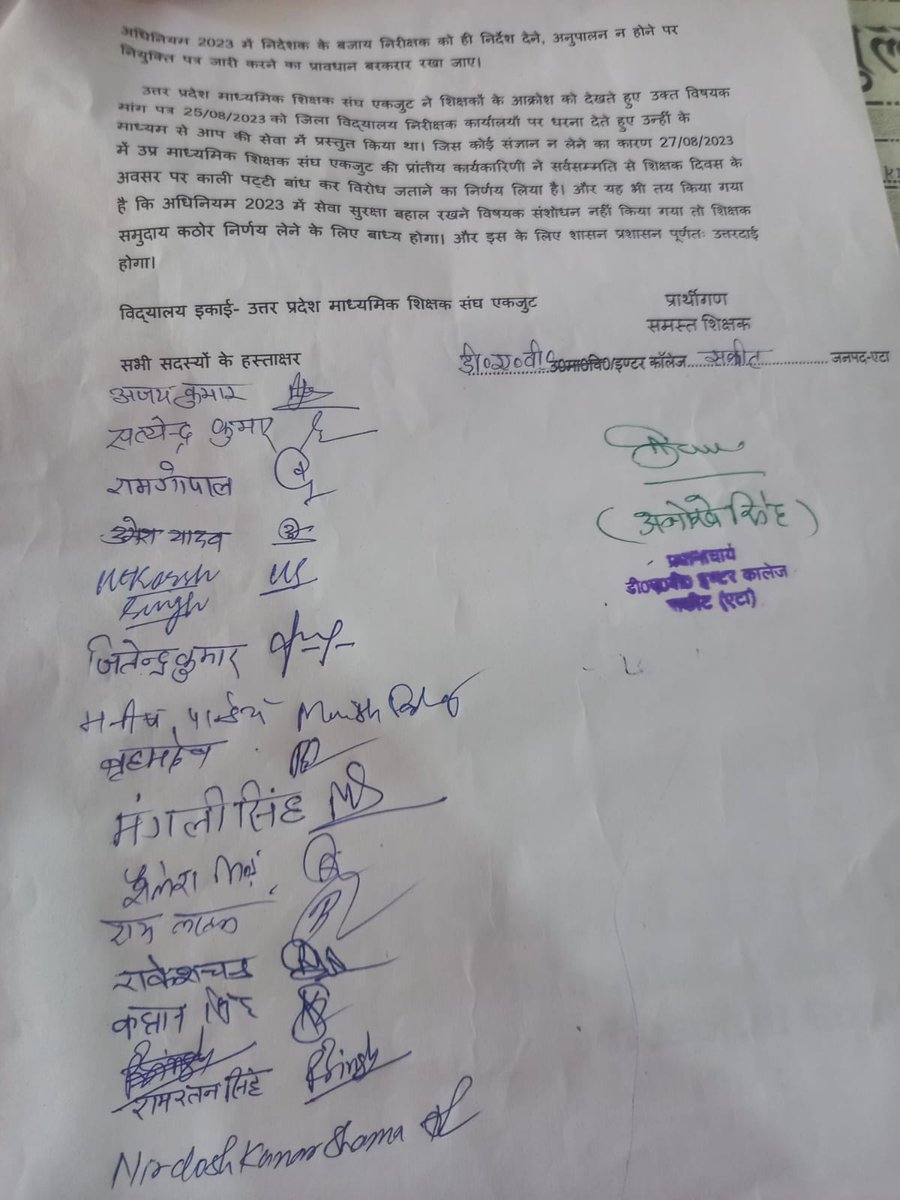 अधिनियम 2023 में निदेशक के बजाय निरीक्षक को ही निर्देश देने, अनुपालन न होने पर
नियुक्ति पत्र जारी करने का प्रावधान बरकरार रखा जाए।
उत्तर प्रदेश माध्यमिक शिक्षक संघ एकजुट ने शिक्षकों के आक्रोश को देखते हुए उक्त विषयक
मांग पत्र 25/08/2023 को जिला विद्यालय निरीक्षक कार्यालयों पर धरना देते हुए उन्हीं के
माध्यम से आप की सेवा में प्रस्तुत किया था। जिस कोई संज्ञान न लेने का कारण 27/08/2023
में उप्र माध्यमिक शिक्षक संघ एकजुट की प्रांतीय कार्यकारिणी ने सर्वसम्मति से शिक्षक दिवस के
अवसर पर काली पट्टी बांध कर विरोध जताने का निर्णय लिया है। और यह भी तय किया गया
है कि अधिनियम 2023 में सेवा सुरक्षा बहाल रखने विषयक संशोधन नहीं किया गया तो शिक्षक
समुदाय कठोर निर्णय लेने के लिए बाध्य होगा। और इस के लिए शासन प्रशासन पूर्णतः उत्तरदाई
होगा।
विद्यालय इकाई- उत्तर प्रदेश माध्यमिक शिक्षक संघ एकजुट
प्रार्थीगण
समस्त शिक्षक
सभी सदस्यों के हस्ताक्षर
डी०ए०वी० उ0मा0वि0/इण्टर कॉलेज सकीत जनपद-एटा
अजय कुमार
सत्येन्द्र कुमार
रामगोपाल
उमेश यादव
Singh
जितेन्द्र कुमार
मनीष पाण्डेय Manish
बृहमदेव
मंगली सिंह MS
राम
राकेशचन्द्र
कप्तान सिंह
रामरतन सिंह
Nirdosh Kumar Sharma
(अनोखे सिंह)
प्रधानाचार्य
डी०ए०वी० इण्टर कालेज
सकीट (एटा)